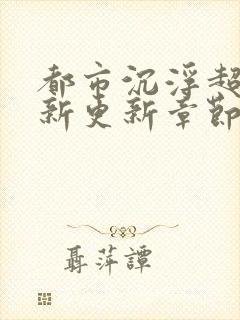 都市沉浮超
新更新章節
聶萍譚